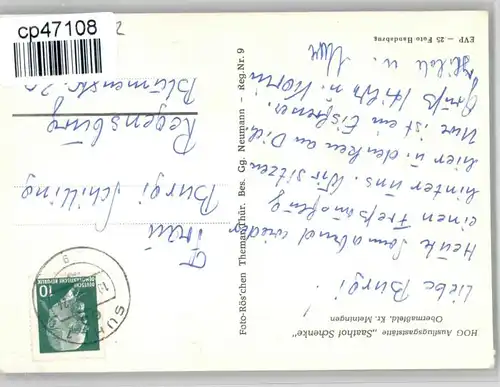 cp47108
2
HOG Ausflugsgaststätte „Saathof Schenke"
Obermaßfeld, Kr. Meiningen
Liebe Burgi!
Heute Sonnabend wieder
einen
hinter uns. Wir sitzen
hier u. denken an Dich.
Uwe ist ein Eisbrener.
Gruß u. Karin
u. Uwe
Foto-Rös'chen Themar/Thür. Bes. Gg. Neumann – Reg.Nr. 9
EVP – 25 Foto Handabzug
Frau
Burgi Schilling
Regensburg
Blumenstr. 20
DEUTSCHE
DEMOKRATISCHE REPUBLIK
10
SUHL